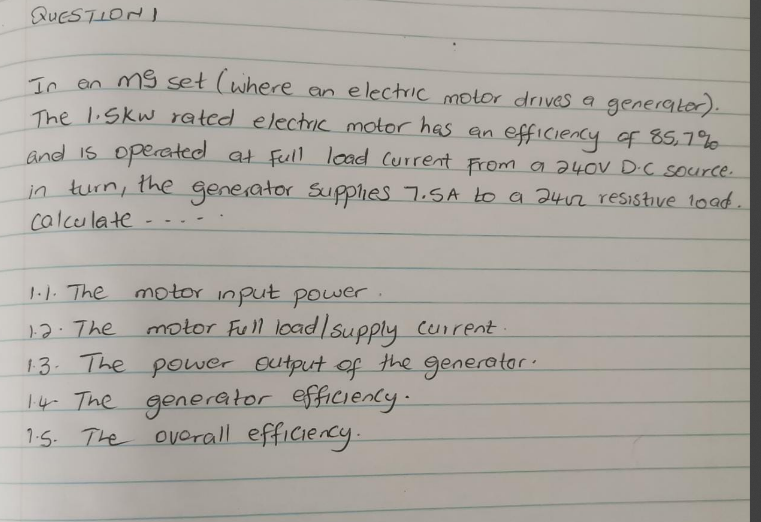 QUESTION 1
In an mg set (where an electric motor drives a generator).
The 1.5kw rated electric motor has an efficiency of 85,7%
and is operated at full load current from a 240V D.C source.
in turn, the generator supplies 7.5A to a 24Ω resistive load.
calculate ----.
1.1. The motor input power.
1.2. The motor full load/supply current.
1.3. The power output of the generator.
1.4 The generator efficiency.
1.5. The overall efficiency.